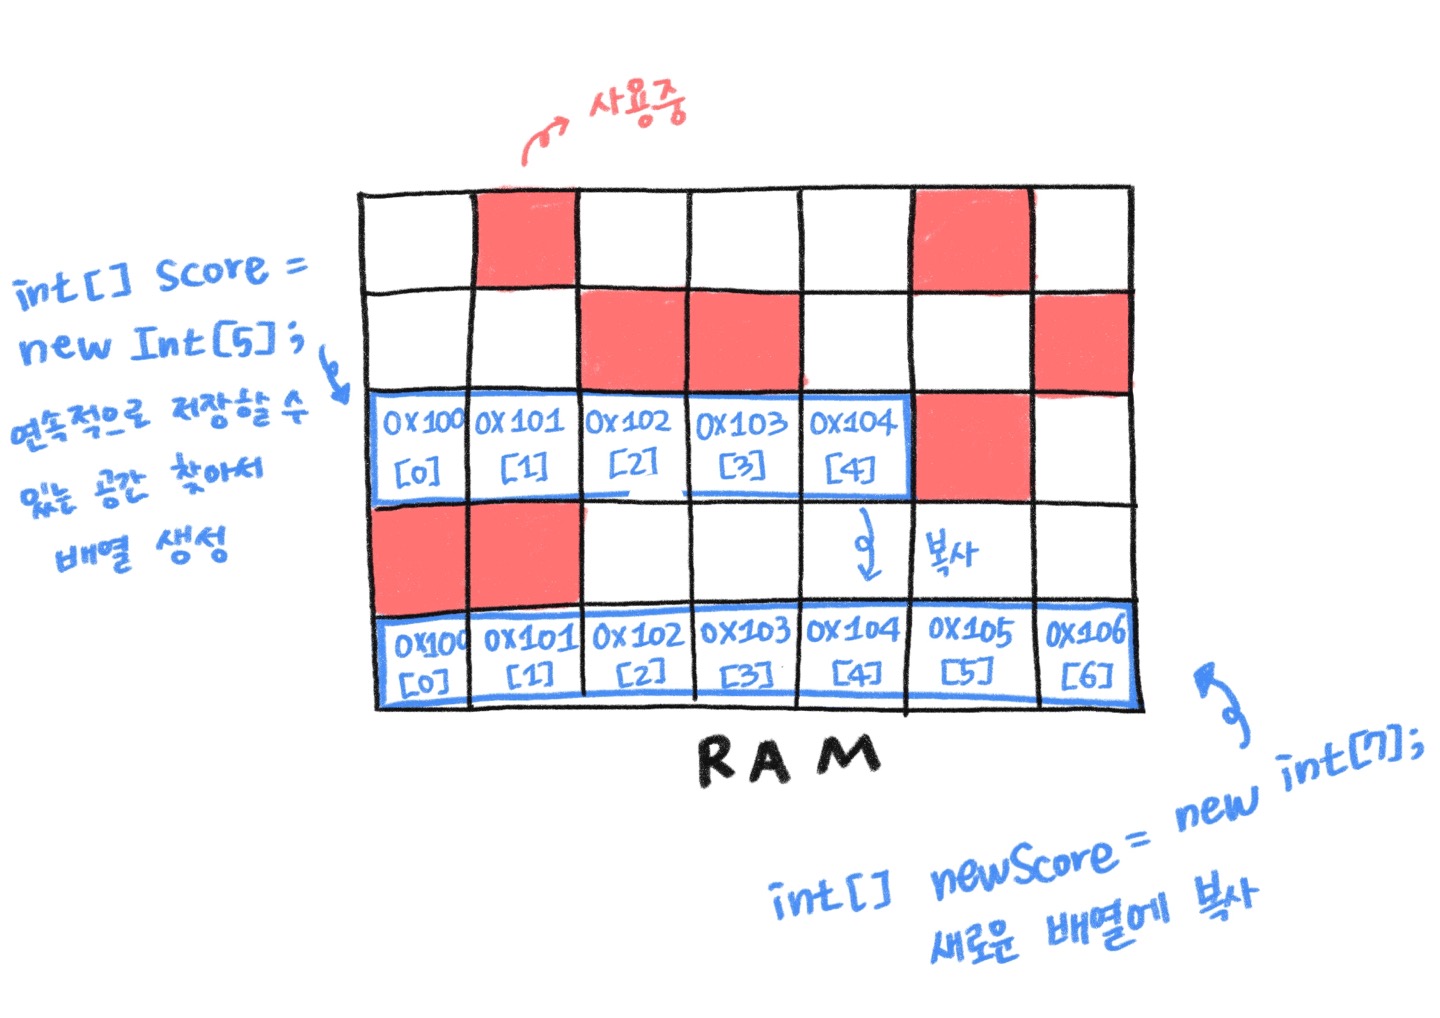 사용중
int[] Score =
new Int[5];
연속적으로 저장할 수
있는 공간 찾아서
배열 생성
0x100 0x101 0x102 0x103 0x104
[0] [1] [2] [3] [4]
복사
0x100 0x101 0x102 0x103 0x104 0x105 0x106
[0] [1] [2] [3] [4] [5] [6]
RAM
int[] newScore = new int[7];
새로운 배열에 복사